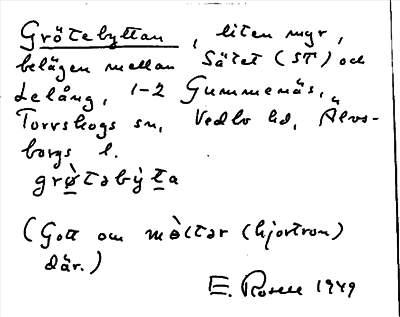 Grötebyttan, liten myr,
belägen mellan Sätet (ST) och
Lelång, 1-2 Gummenäs,
Torrskogs sn, Vedbo hd, Älvs-
borgs l.
grø̀tabỳta
(Gott om mòltər (hjortron)
där.)
E. Rosell 1949